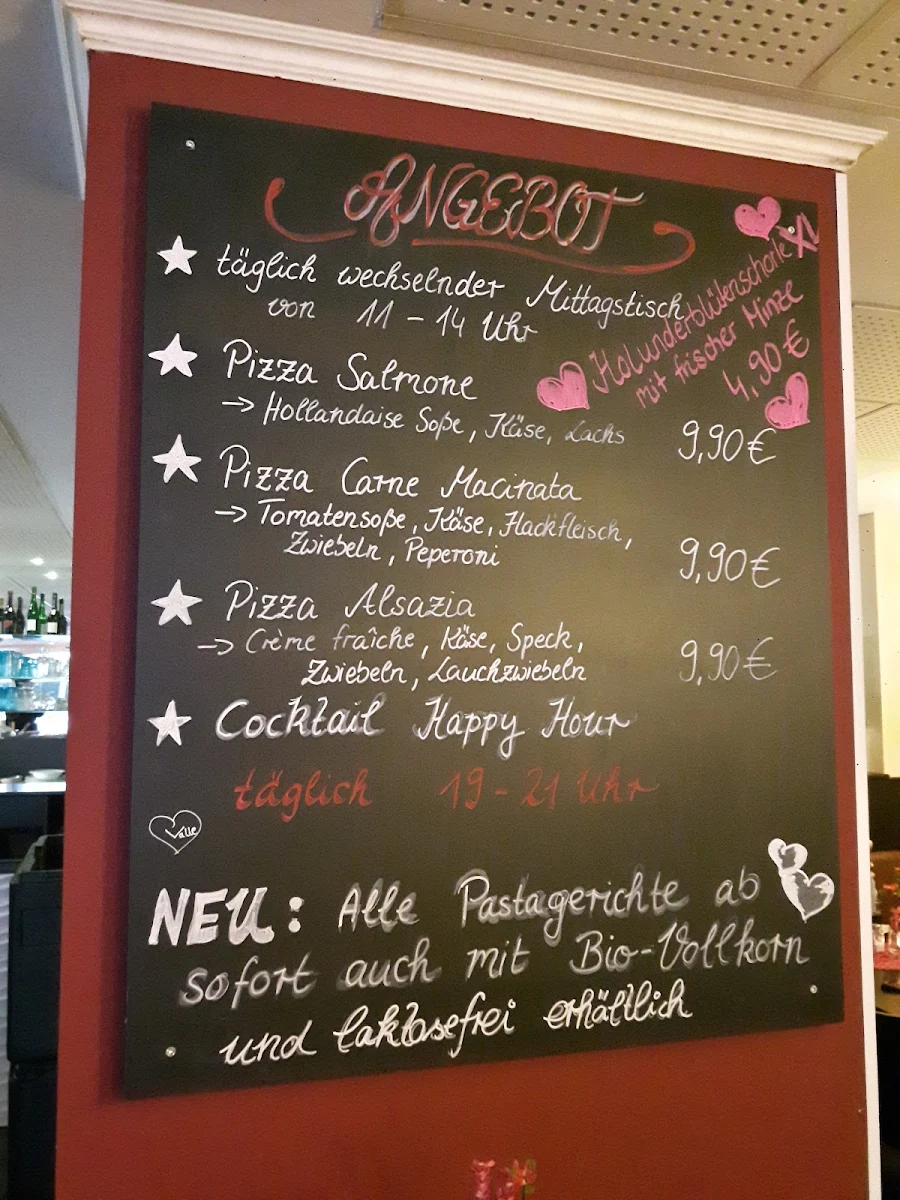 ANGEBOT
täglich wechselnder Mittagstisch
von 11 - 14 Uhr
Holunderblütenschorle XL
mit frischer Minze
4,90 €
Pizza Salmone
→ Hollandaise Soße, Käse, Lachs
9,90 €
Pizza Carne Macinata
→ Tomatensoße, Käse, Hackfleisch,
Zwiebeln, Peperoni
9,90 €
Pizza Alsazia
→ Crème fraîche, Käse, Speck,
Zwiebeln, Lauchzwiebeln
9,90 €
Cocktail Happy Hour
täglich 19 - 21 Uhr
NEU: Alle Pastagerichte ab
sofort auch mit Bio-Vollkorn
und laktosefrei erhältlich